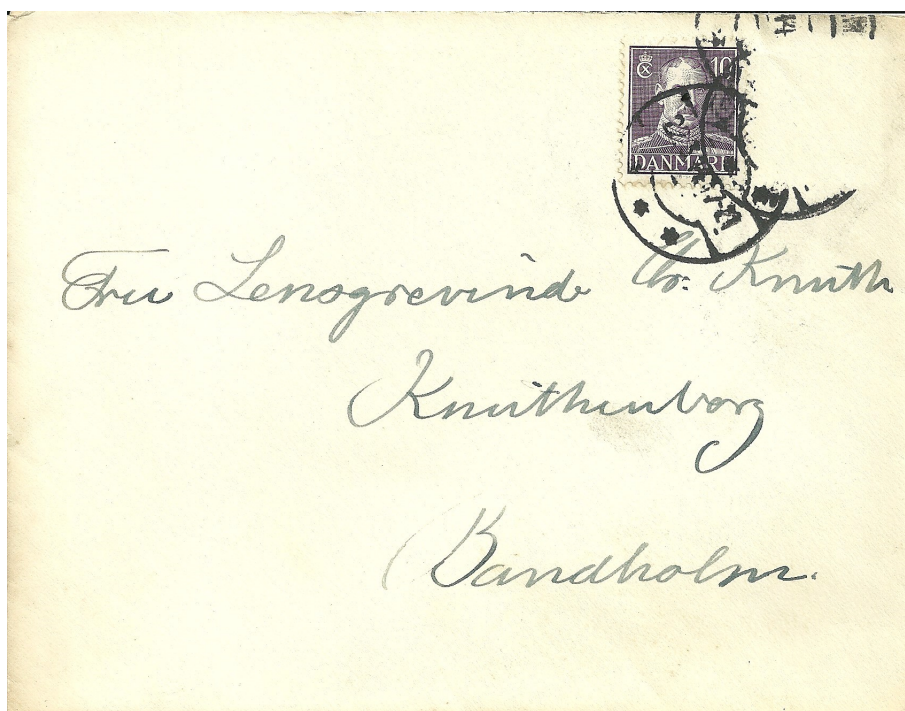 10
DANMARK
Fru Lensgrevinde Chr. Knuth
Knuthenborg
Bandholm.